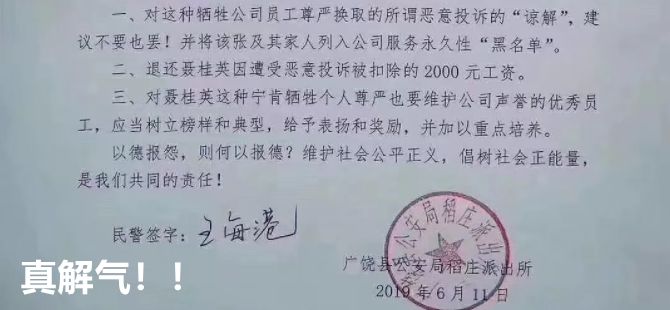 一、对这种牺牲公司员工尊严换取的所谓恶意投诉的“谅解”，建
议不要也罢！并将该张及其家人列入公司服务永久性“黑名单”。
二、退还聂桂英因遭受恶意投诉被扣除的2000元工资。
三、对聂桂英这种宁肯牺牲个人尊严也要维护公司声誉的优秀员
工，应当树立榜样和典型，给予表扬和奖励，并加以重点培养。
以德报怨，则何以报德？维护社会公平正义，倡树社会正能量，
是我们共同的责任！
民警签字：王海港
广饶县公安局稻庄派出所
2019年6月11日
公安局稻庄派出
真解气！！